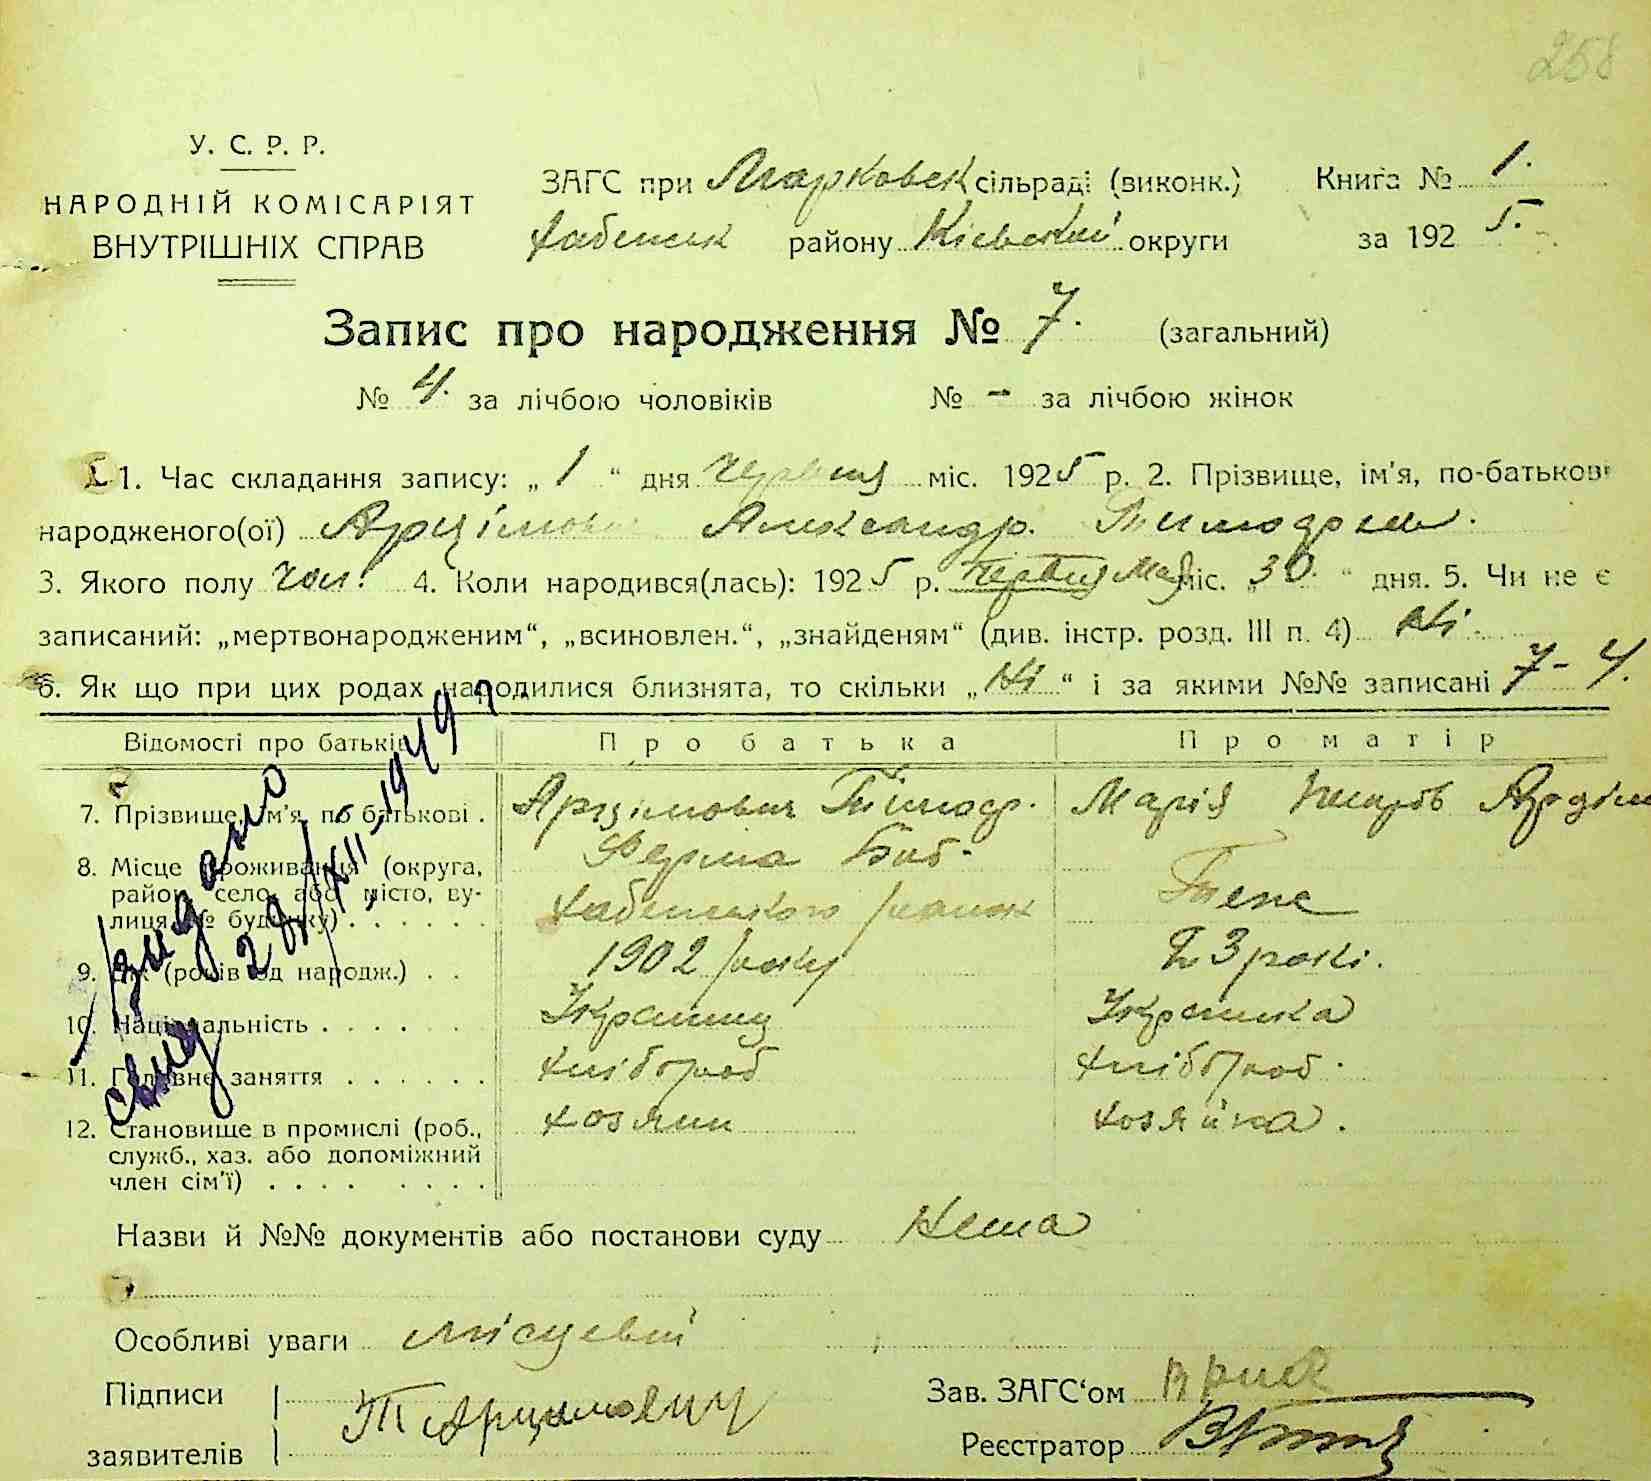 258
У. С. Р. Р.
НАРОДНІЙ КОМІСАРІЯТ
ВНУТРІШНІХ СПРАВ
ЗАГС при Марковск сільраді (виконк.) Книга № 1.
Хабенськ району Кіевский округи за 1925.
Запис про народження № 7. (загальний)
№ 4. за лічбою чоловіків № - за лічбою жінок
1. Час складання запису: „1“ дня червня міс. 1925 р. 2. Прізвище, ім'я, по-батькові
народженого(ої) Арцімович Александр. Тимофеев.
3. Якого полу чол. 4. Коли народився(лась): 1925 р. червня Мая міс. „30“ дня. 5. Чи не є
записаний: „мертвонародженим“, „всиновлен.“, „знайденям“ (див. інстр. розд. III п. 4) ні.
6. Як що при цих родах народилися близнята, то скільки „ні“ і за якими №№ записані 7-4.
Відомості про батьків Про батька Про матір
7. Прізвище, ім'я, по батькові . Арцімович Тимоф. Марія
8. Місце проживання (округа, район, село, або місто, вулиця, № будинку) . . . . . . Ферма Боб. Хабенського району Тепе
9. Вік (років од народж.) . . 1902 року 23 рокі.
10. Національність . . . . . . Украинец Украинка
11. Головне заняття . . . . . . Хлібороб Хлібороб.
12. Становище в промислі (роб., служб., хаз. або допоміжний член сім'ї) . . . . . . . . Хозяин Хозяйка.
видано свид 28/XII-1949 р
Назви й №№ документів або постанови суду Нема
Особливі уваги місцевий
Підписи заявителів Т Арцимович
Зав. ЗАГС'ом
Реєстратор